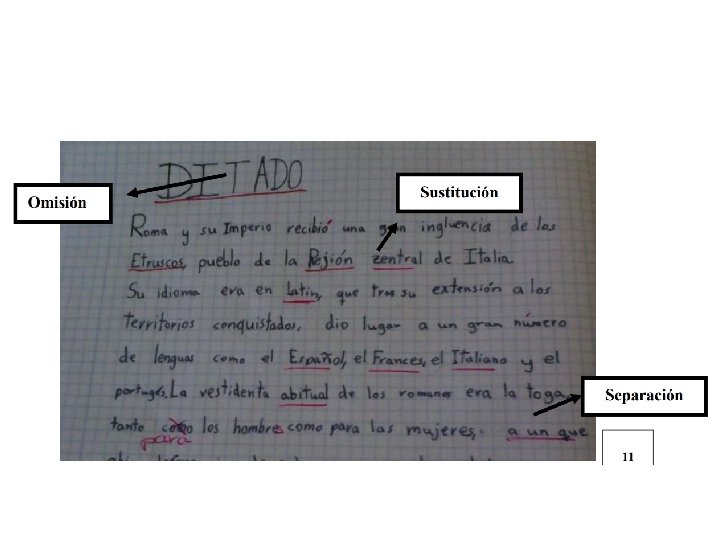 DITADO
Sustitución
Omisión
Roma y su Imperio recibió una gran ingluencia de los
Etruscos, pueblo de la Rejión zentral de Italia.
Su idioma era en latin, que tras su extensión a los
territorios conquistados, dio lugar a un gran número
de lenguas como el Español, el Frances, el Italiano y el
portugés. La vestidenta abitual de los romanos era la toga
Separación
tanto como los hombres como para las mujeres. a un que
para
11